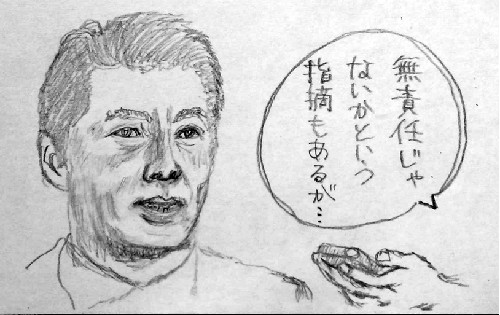 無責任じゃ
ないかという
指摘もあるが…